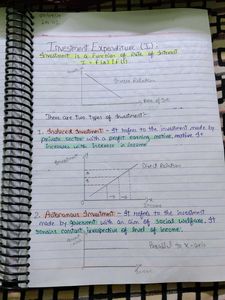 Investment Expenditure (I)
Investment is a function of Rate of Interest
Inverse Relation
There are two types of Investment:-
1. Induced Investment :- It refers to the investment made by
private sector with a profit earning motive. It
increases with increase in income
Investment
Direct Relation
Income
2. Autonomous Investment :- It refers to the investment
made by government with an aim of social welfare. It
remains constant irrespective of level of income.
Parallel to X-axis